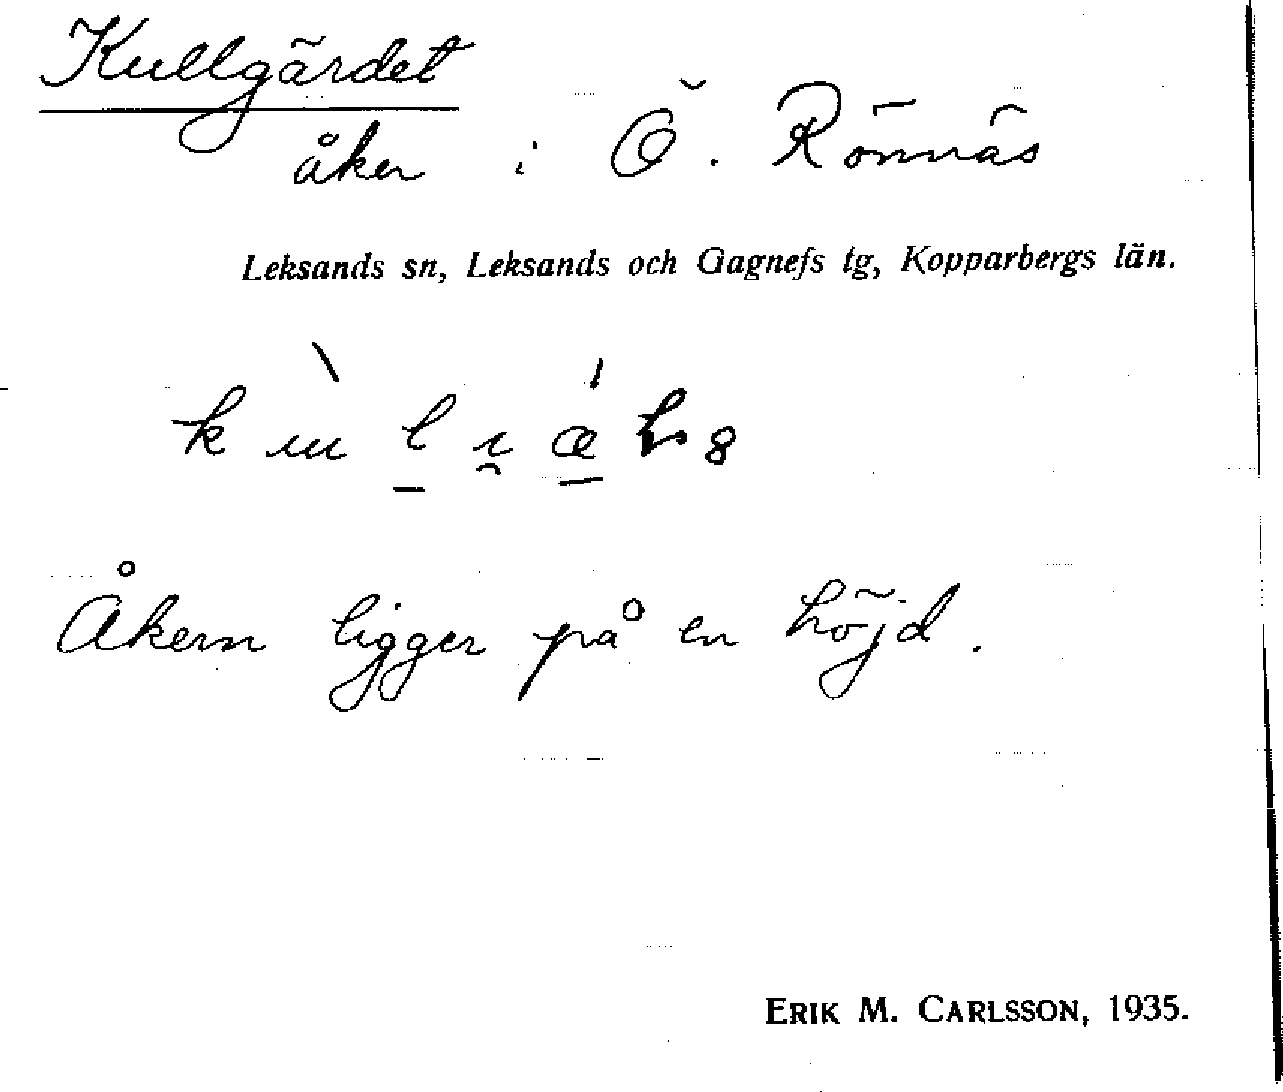 Kullgärdet
åker i Ö. Rönnäs
Leksands sn, Leksands och Gagnefs tg, Kopparbergs län.
Åkern ligger på en höjd.
ERIK M. CARLSSON, 1935.